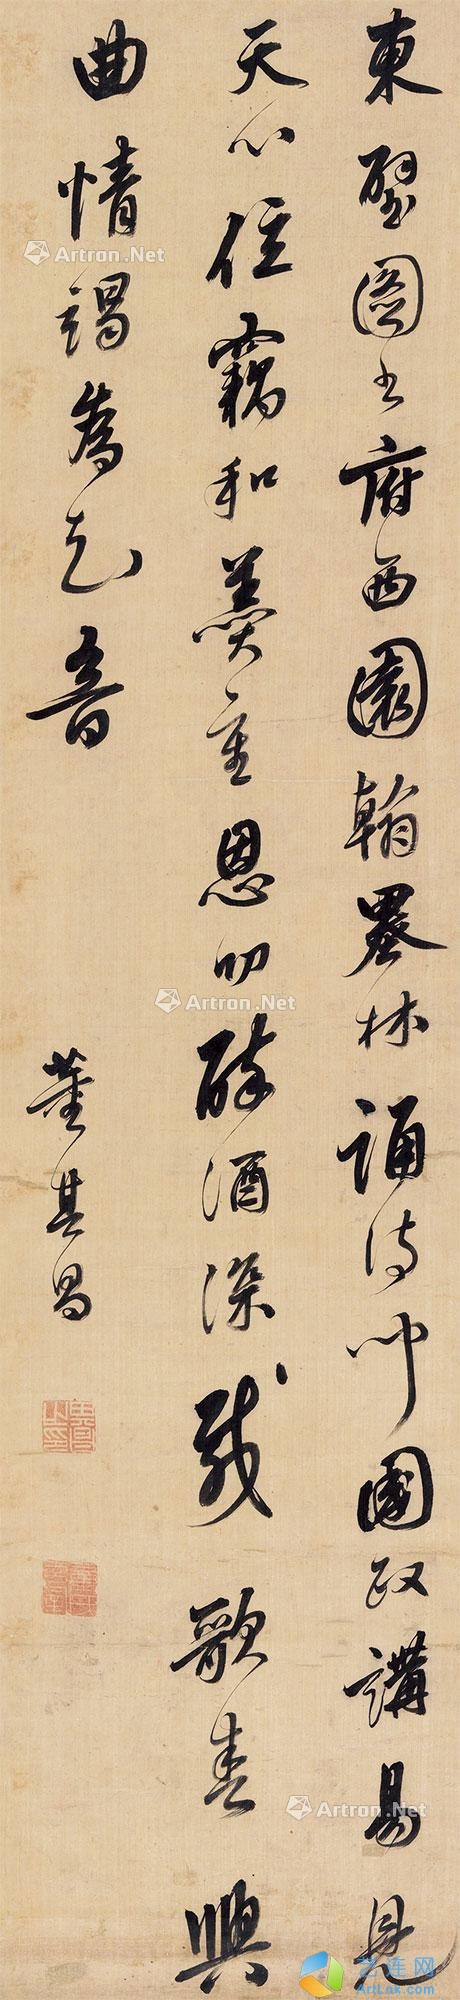 東壁圖書府西園翰墨林誦詩聞國政講易見
天心位竊和羹重恩叨醉酒深載歌春興
曲情竭為知音
董其昌
Artron.Net
Artron.Net
Artron.Net
Artron.Net
Artron.Net
艺连网
ArtLnk.com